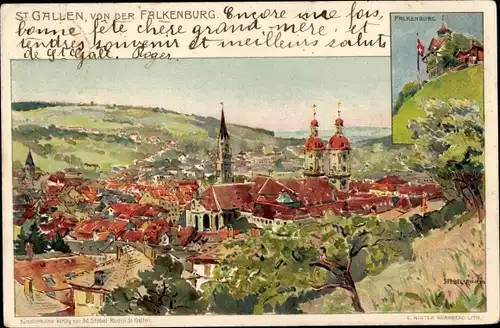 ST GALLEN, VON DER FALKENBURG. Encore une fois,
bonne fête chère grand, mère, et
tendres souvenir et meilleurs saluts
de St Gall. Roger.
FALKENBURG.
Künstlerkarte Verlag von Ad. Ströbel-
E. NISTER NÜRNBERG LITH.